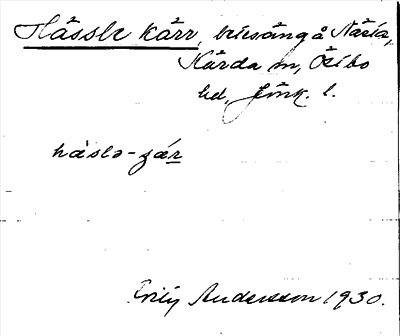 Hässle kärr, betesäng å Näsla,
Kärda sn, Östbo
hd, Jönk. l.
häslə-ɕär
Emly Andersson 1930.